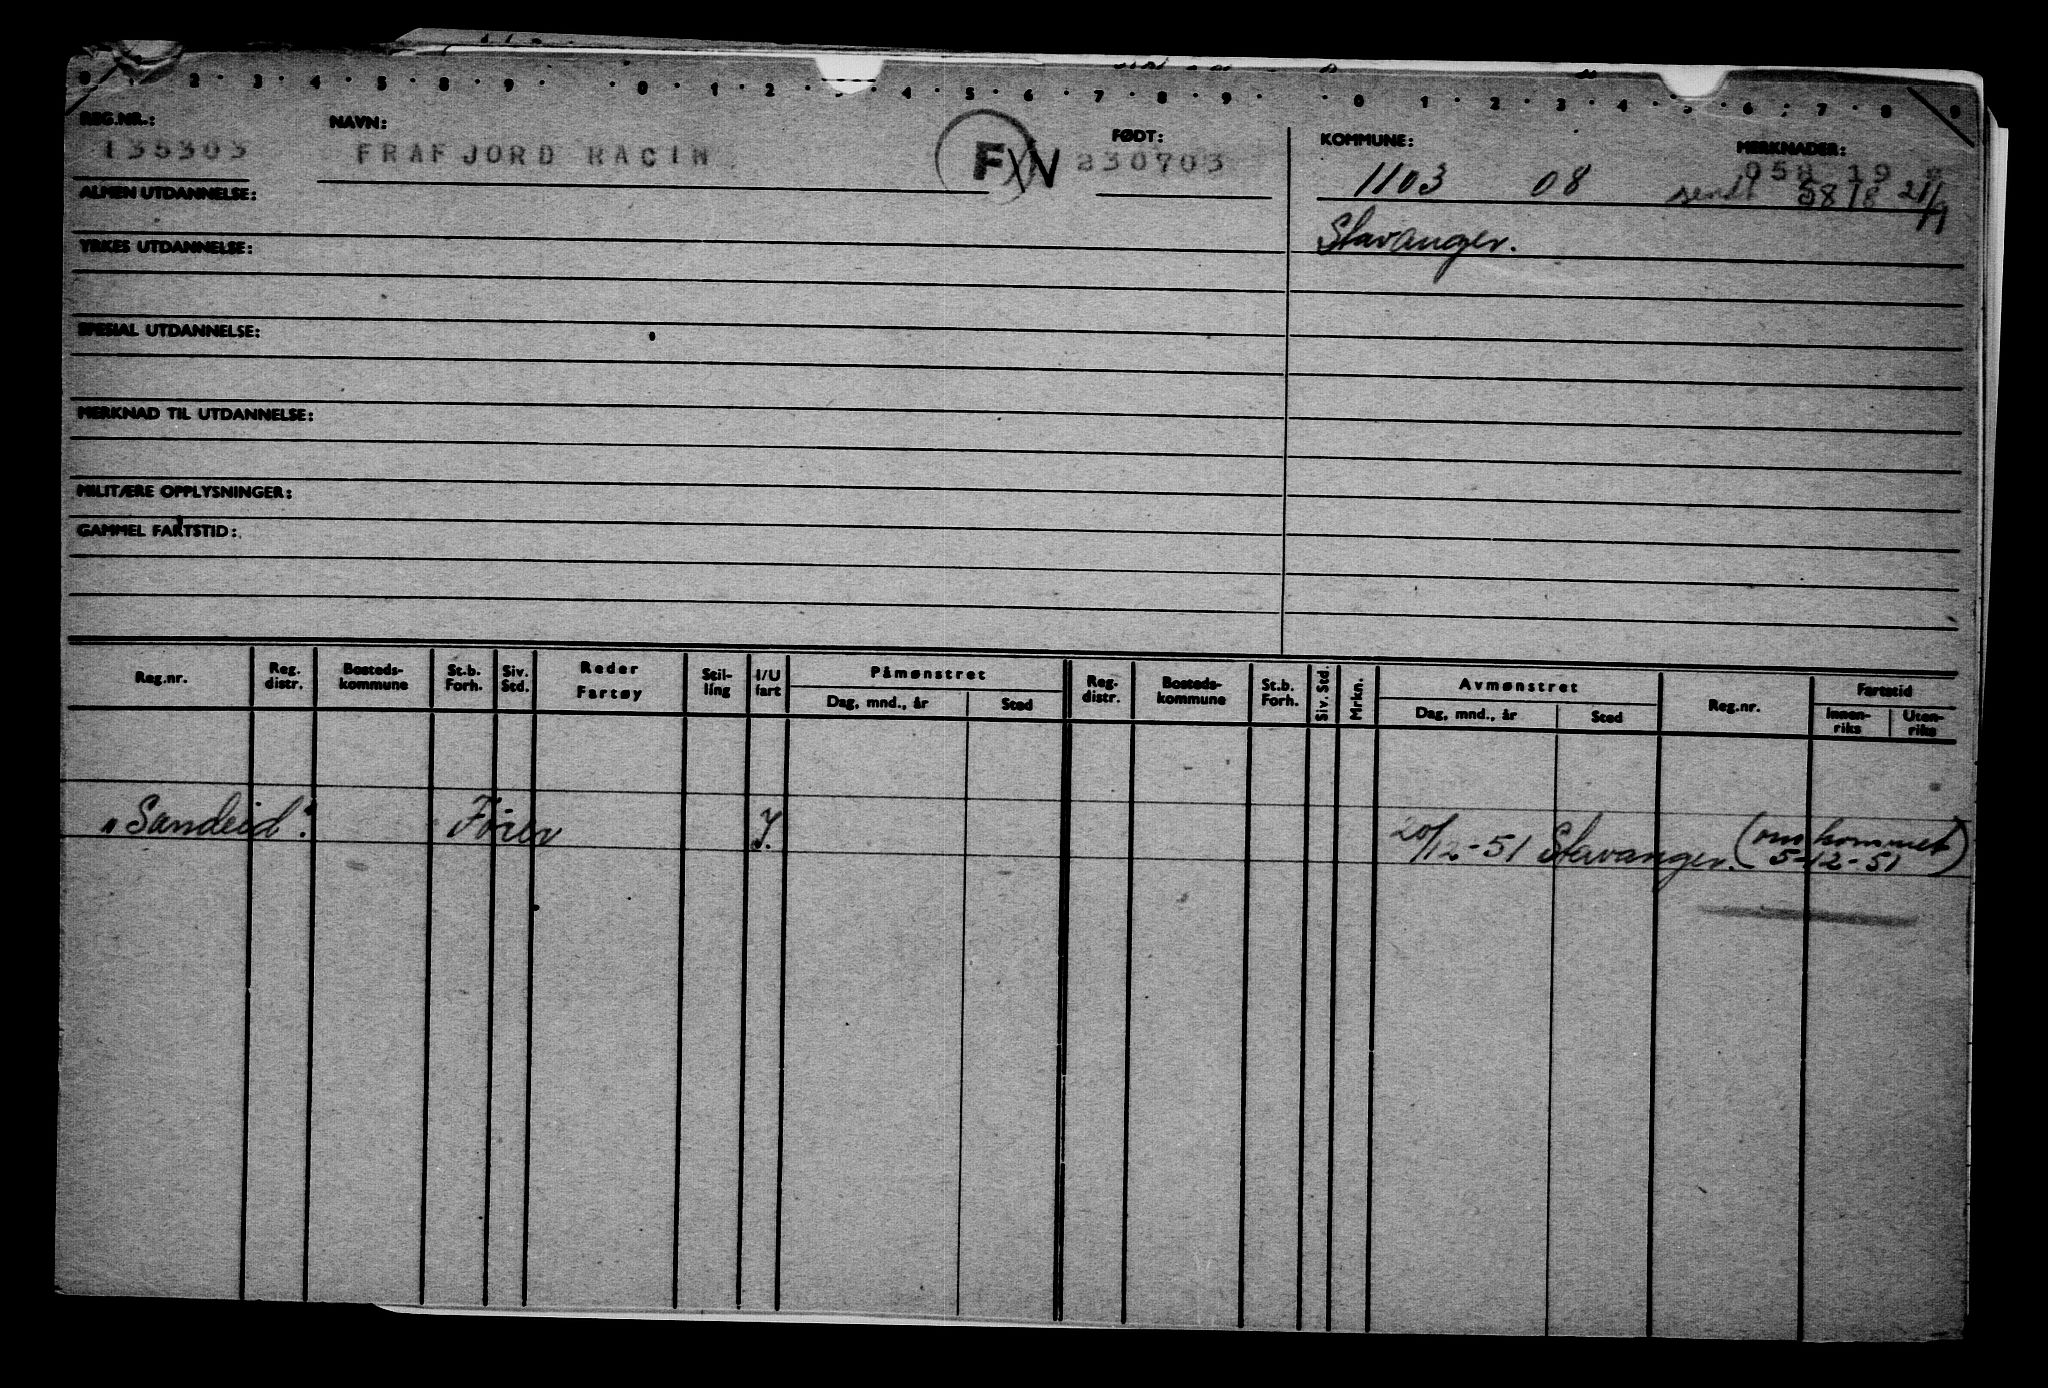 0 1 2 · 3 · 4 · 5 · 8 · 9 · · 0 · 1 · 2 · 4 · 5 · 6 · 7 · 8 · 9 · · 0 · 1 · 2 · 3 · 4 · 5 · 6 · 7 · 8 · 9
REG.NR.: NAVN: FØDT: KOMMUNE: MERKNADER:
135303 FRAFJORD RACIN FXN 230703 1103 08 058 19
sendt 5818 21/9
ALMEN UTDANNELSE: Stavanger.
YRKES UTDANNELSE:
SPESIAL UTDANNELSE:
MERKNAD TIL UTDANNELSE:
MILITÆRE OPPLYSNINGER:
GAMMEL FARTSTID:
Reg.nr. Reg. distr. Bosteds-kommune St.b. Forh. Siv. Std. Reder Fartøy Stil-ling I/U fart Påmønstret Dag, mnd., år Sted Reg. distr. Bosteds-kommune St.b. Forh. Siv. Std. Mrkn. Avmønstret Dag, mnd., år Sted Reg.nr. Fartstid Innen-riks Uten-riks
"Sandeid". Fører I. 20/12-51 Stavanger. (omkommet
5-12-51)